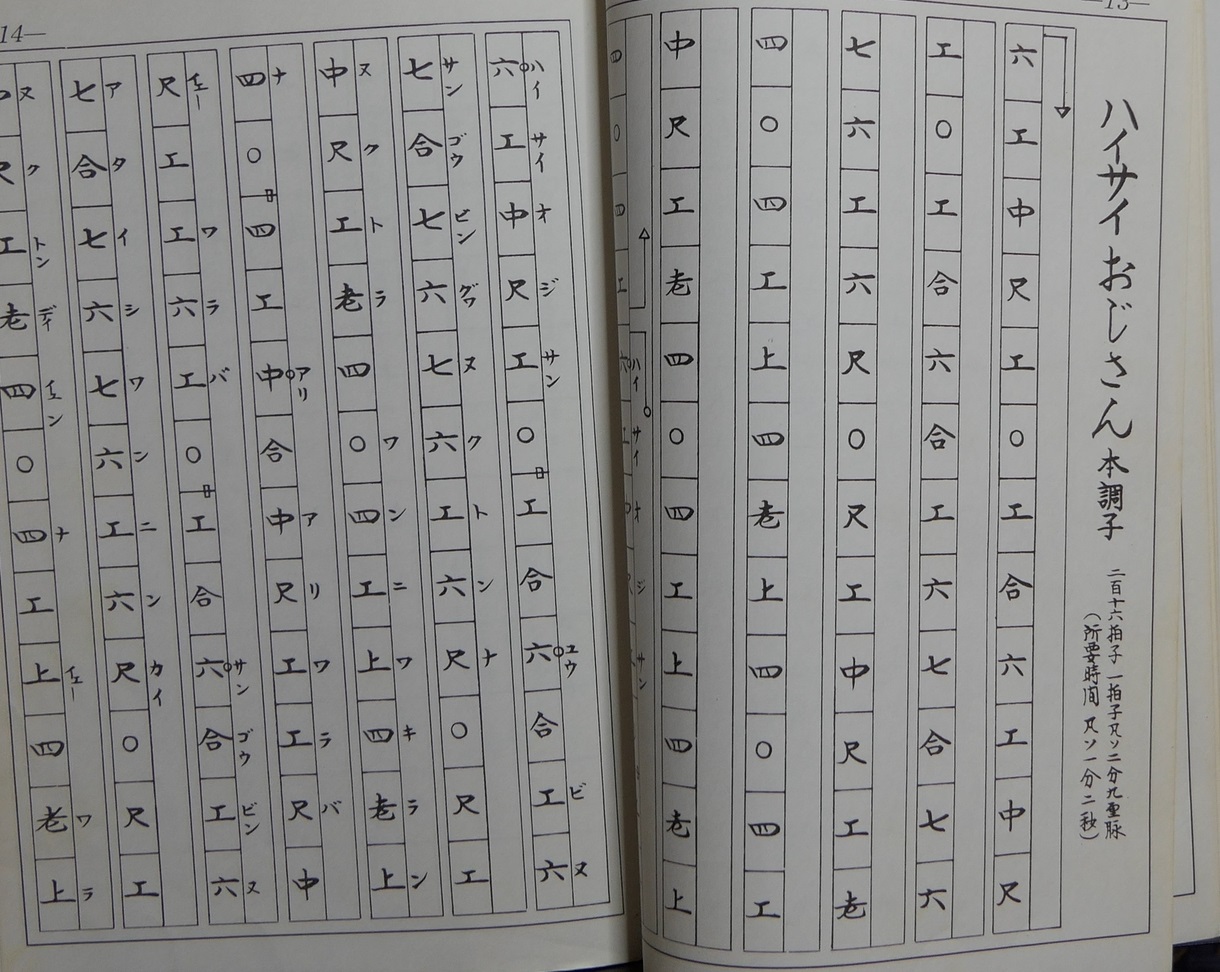 —13—
ハイサイおじさん 本調子
二百十六拍子 一拍子凡ソ二分九重脈
（所要時間 凡ソ一分二秒）
六工中尺工○工合六工中尺
工○工合六合工六七合七六
七六工六尺○尺工中尺工老
四○四工上四老上四○四工
中尺工老四○四工上四老上
ハイ サイ オ ジ サン
四○四工六工
14—
ハイ サイ オ ジ サン ユウ ビ ヌ
六工中尺工○工合六合工六
サン ゴウ ビン グヮ ヌ ク ト ン ナ
七合七六七六工六尺○尺工
ヌ ク ト ラ ワ ン ニ ワ キ ラ ン
中尺工老四○四工上四老上
ナ アリ ア リ ワ ラ バ
四○四工中合中尺工工尺中
イェー ワ ラ バ サン ゴウ ビン ヌ
尺工工六工○工合六合工六
ア タ イ シ ワ ン ニ ン カイ
七合七六七六工六尺○尺工
ヌ ク トン ディ イェン ナ イェー ワ ラ
尺工老四○四工上四老上